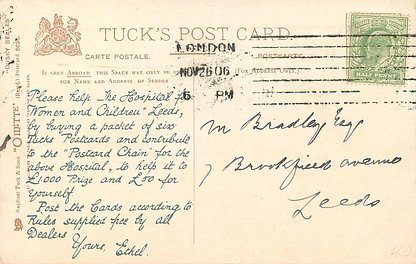 TUCK'S POST CARD
CARTE POSTALE. POSTKARTE.
IF SENT ABROAD THIS SPACE MAY ONLY
NAME AND ADDRESS OF SENDER
FOR ADDRESS ONLY.)
LONDON
NOV 26 06
6 PM
HALF PENNY
Please help The Hospital for
Women and Children" Leeds,
by buying a packet of six
Tucks Postcards and contribute
to the "Postcard Chain" for the
above Hospital, to help it to
£1000 Prize and £50 for
yourself.
Post the Cards according to
Rules supplied free by all
Dealers
Yours, Ethel.
M Bradley Esq
7 Brookfield avenue
Leeds
Raphael Tuck & Sons' "OILETTE"